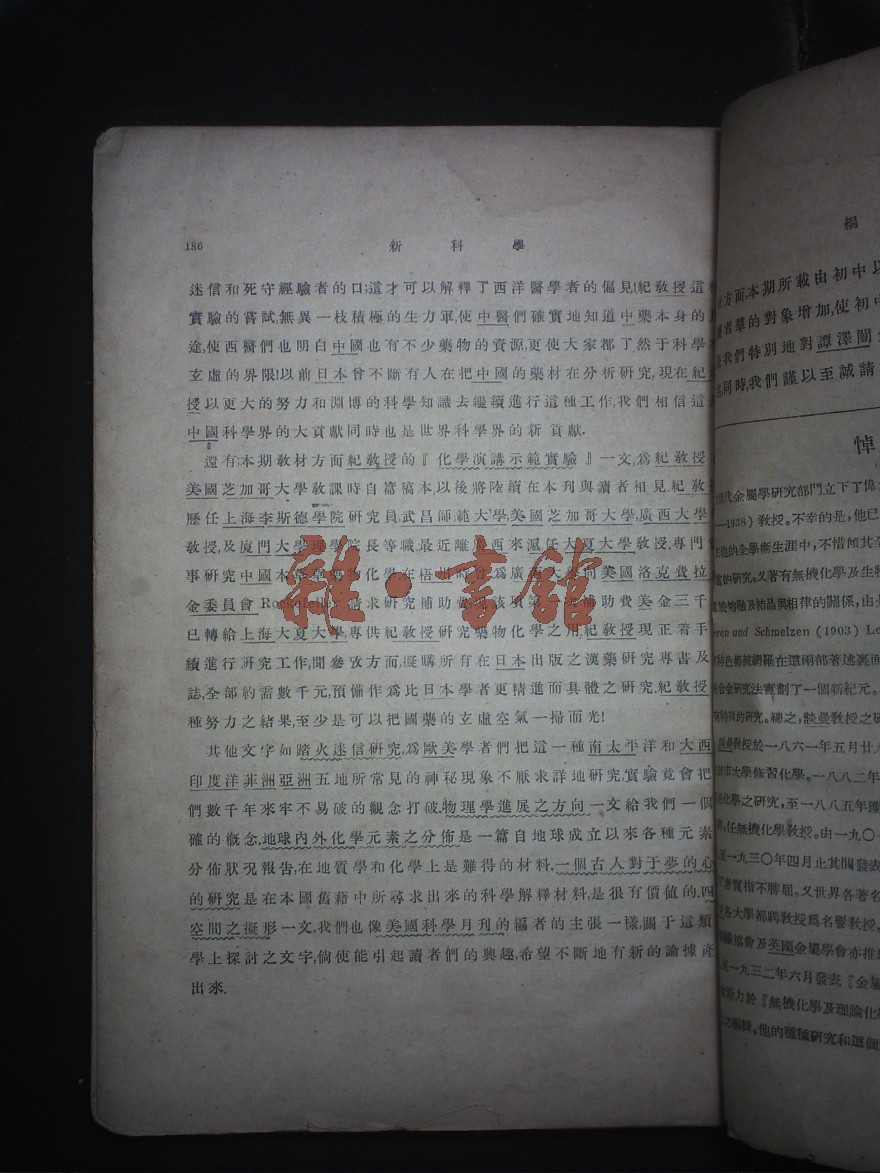 186
新科學
迷信和死守經驗者的口;這才可以解釋了西洋醫學者的偏見!紀教授這
實驗的嘗試,無異一枝積極的生力軍,使中醫們確實地知道中藥本身的
途,使西醫們也明白中國也有不少藥物的資源,更使大家都了然于科學
玄虛的界限!以前日本曾不斷有人在把中國的藥材在分析研究,現在紀
授以更大的努力和淵博的科學知識去繼續進行這種工作,我們相信這
中國科學界的大貢獻同時也是世界科學界的新貢獻.
還有本期教材方面紀教授的『化學演講示範實驗』一文,爲紀教授
美國芝加哥大學教課時自篇稿本以後將陸續在本刊與讀者相見.紀教
歷任上海李斯德學院研究員,武昌師範大學,美國芝加哥大學,廣西大學
教授,及廈門大學理學院長等職.最近離廣西來滬,任大夏大學教授,專門
事研究中國本草藥物化學,在梧州時曾爲廣西大學向美國洛克費拉
金委員會 Rockefeller 請求研究補助費現該項第一批補助費美金三千
已轉給上海大夏大學專供紀教授研究藥物化學之用,紀教授現正着手
續進行研究工作,聞參攷方面,擬購所有在日本出版之漢藥研究專書及
誌,全部約需數千元,預備作爲比日本學者更精進而具體之研究.紀教授
種努力之結果,至少是可以把國藥的玄虛空氣一掃而光!
其他文字如踏火迷信研究,爲歐美學者們把這一種南太平洋和大西
印度洋菲洲亞洲五地所常見的神秘現象不厭求詳地研究,實驗竟會把
們數千年來牢不易破的觀念打破.物理學進展之方向一文給我們一個
確的槪念,地球內外化學元素之分佈是一篇自地球成立以來各種元素
分佈狀况報告,在地質學和化學上是難得的材料.一個古人對于夢的心
的研究是在本國舊藉中所尋求出來的科學解釋材料,是很有價值的.四
空間之擬形一文,我們也像美國科學月刊的編者的主張一樣,關于這類
學上探討之文字,倘使能引起讀者們的興趣,希望不斷地有新的論據產
出來.
雜·書館
編
方面,本期所載由初中以
者羣的對象增加,使初中
我們特別地對譚澤闓
同時,我們謹以至誠請
悼
代金屬學研究部門立下了偉
—1938)教授。不幸的是,他已
他的全學術生涯中,不惜傾其全
的研究。又著有無機化學及生物
熔融及結晶與相律的關係,由
ren und Schmelzen (1903) Le
特色都被網羅在這兩部著述裏面
合金研究法實劃了一個新紀元。
的研究。總之,談曼教授之研
教授於一八六一年五月廿八
市大學修習化學。一八八二年
化學之研究,至一八八五年獲
任無機化學教授。由一九〇
一九三〇年四月止其間發表
者實指不勝屈。又世界各著名
各大學都聘教授爲名譽教授。
協會及英國金屬學會亦推
一九三二年六月發表『金屬
致力於『無機化學及理論化
之編輯。他的種種研究和這個